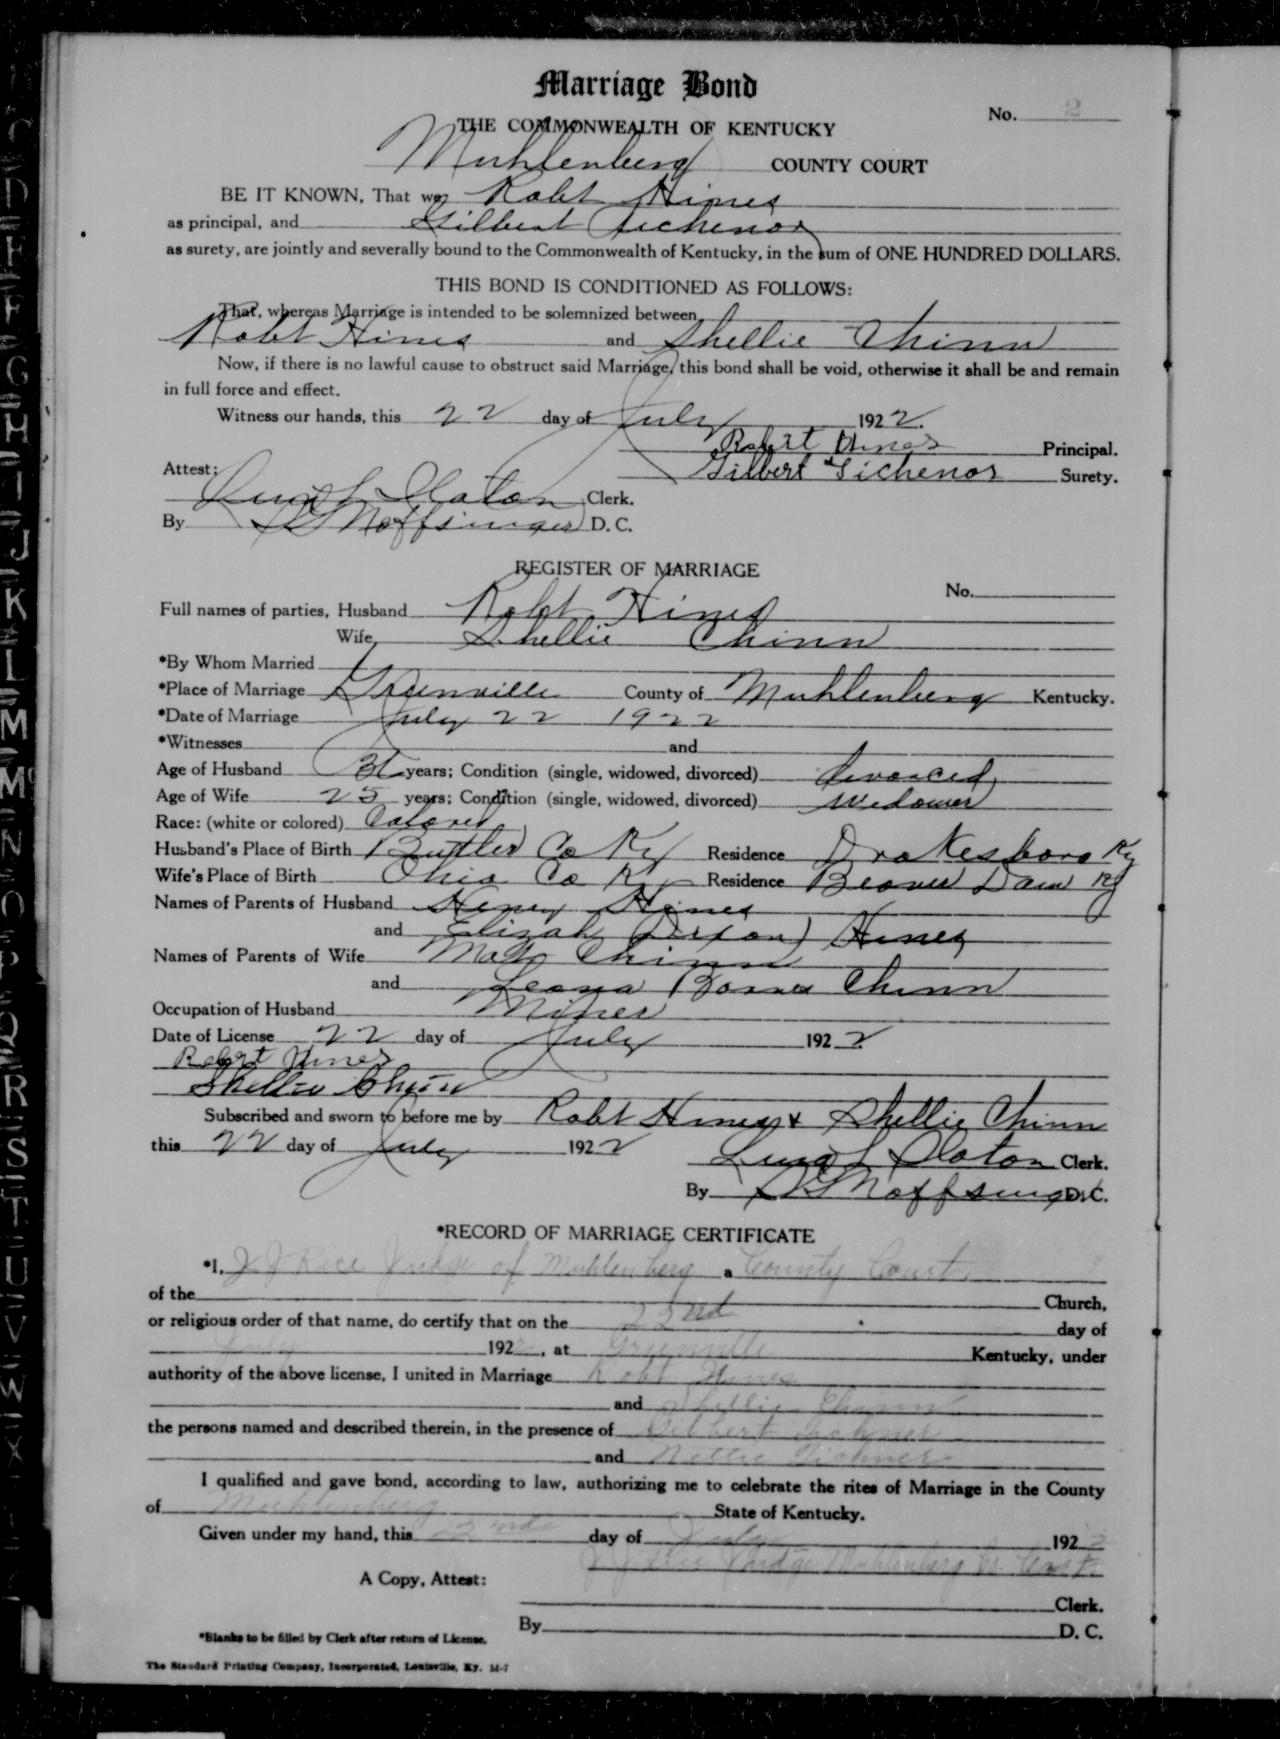 Marriage Bond
No. 2
THE COMMONWEALTH OF KENTUCKY
Muhlenberg COUNTY COURT
BE IT KNOWN, That we, Robt Hines
as principal, and Gilbert Tichenor
as surety, are jointly and severally bound to the Commonwealth of Kentucky, in the sum of ONE HUNDRED DOLLARS.
THIS BOND IS CONDITIONED AS FOLLOWS:
That, whereas Marriage is intended to be solemnized between
Robt Hines and Shellie Chinn
Now, if there is no lawful cause to obstruct said Marriage, this bond shall be void, otherwise it shall be and remain
in full force and effect.
Witness our hands, this 22 day of July 1922.
Robert Hines Principal.
Gilbert Tichenor Surety.
Attest:
Slaton Clerk.
By Noffsinger D. C.
REGISTER OF MARRIAGE
No.
Full names of parties, Husband Robt Hines
Wife, Shellie Chinn
*By Whom Married
*Place of Marriage Greenville County of Muhlenberg Kentucky.
*Date of Marriage July 22 1922
*Witnesses and
Age of Husband years; Condition (single, widowed, divorced) divorced
Age of Wife 25 years; Condition (single, widowed, divorced) Widower
Race: (white or colored) Colored
Husband's Place of Birth Butler Co Ky Residence Drakesboro Ky
Wife's Place of Birth Ohio Co Ky Residence Beaver Dam Ky
Names of Parents of Husband Henry Hines
and Elizah (Dixon) Hines
Names of Parents of Wife Chinn
and Leona Chinn
Occupation of Husband Miner
Date of License 22 day of July 1922
Robert Hines
Shellie Chinn
Subscribed and sworn to before me by Robt Hines & Shellie Chinn
this 22 day of July 1922
Slaton Clerk.
By Noffsinger D. C.
*RECORD OF MARRIAGE CERTIFICATE
*I, J J Rice Judge of Muhlenberg a County Court
of the Church,
or religious order of that name, do certify that on the 22nd day of
July 1922, at Greenville Kentucky, under
authority of the above license, I united in Marriage Robt Hines
and Shellie Chinn
the persons named and described therein, in the presence of Gilbert Tichner
and Nettie Tichner
I qualified and gave bond, according to law, authorizing me to celebrate the rites of Marriage in the County
of Muhlenberg State of Kentucky.
Given under my hand, this 22nd day of July 1922
J J Rice Judge Muhlenberg Co. Court
A Copy, Attest:
Clerk.
By D. C.
*Blanks to be filled by Clerk after return of License.
The Standard Printing Company, Incorporated, Louisville, Ky. M-7